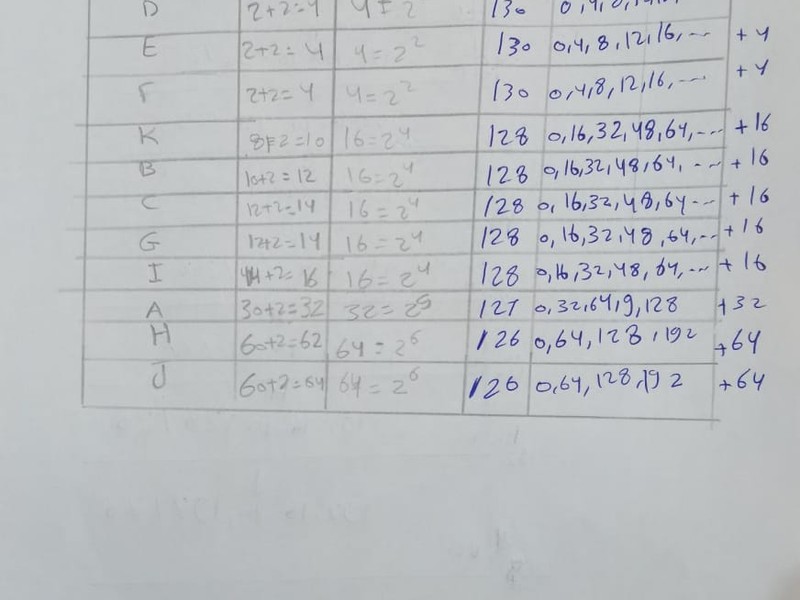 D 2+2=4 130
E 2+2=4 4=2² 130 0,4,8,12,16,... +4
F 2+2=4 4=2² 130 0,4,8,12,16,... +4
K 8+2=10 16=2⁴ 128 0,16,32,48,64,... +16
B 10+2=12 16=2⁴ 128 0,16,32,48,64,... +16
C 12+2=14 16=2⁴ 128 0,16,32,48,64... +16
G 12+2=14 16=2⁴ 128 0,16,32,48,64,... +16
I 14+2=16 16=2⁴ 128 0,16,32,48,64,... +16
A 30+2=32 32=2⁵ 127 0,32,64,9,128 +32
H 60+2=62 64=2⁶ 126 0,64,128,192 +64
J 60+2=64 64=2⁶ 126 0,64,128,192 +64